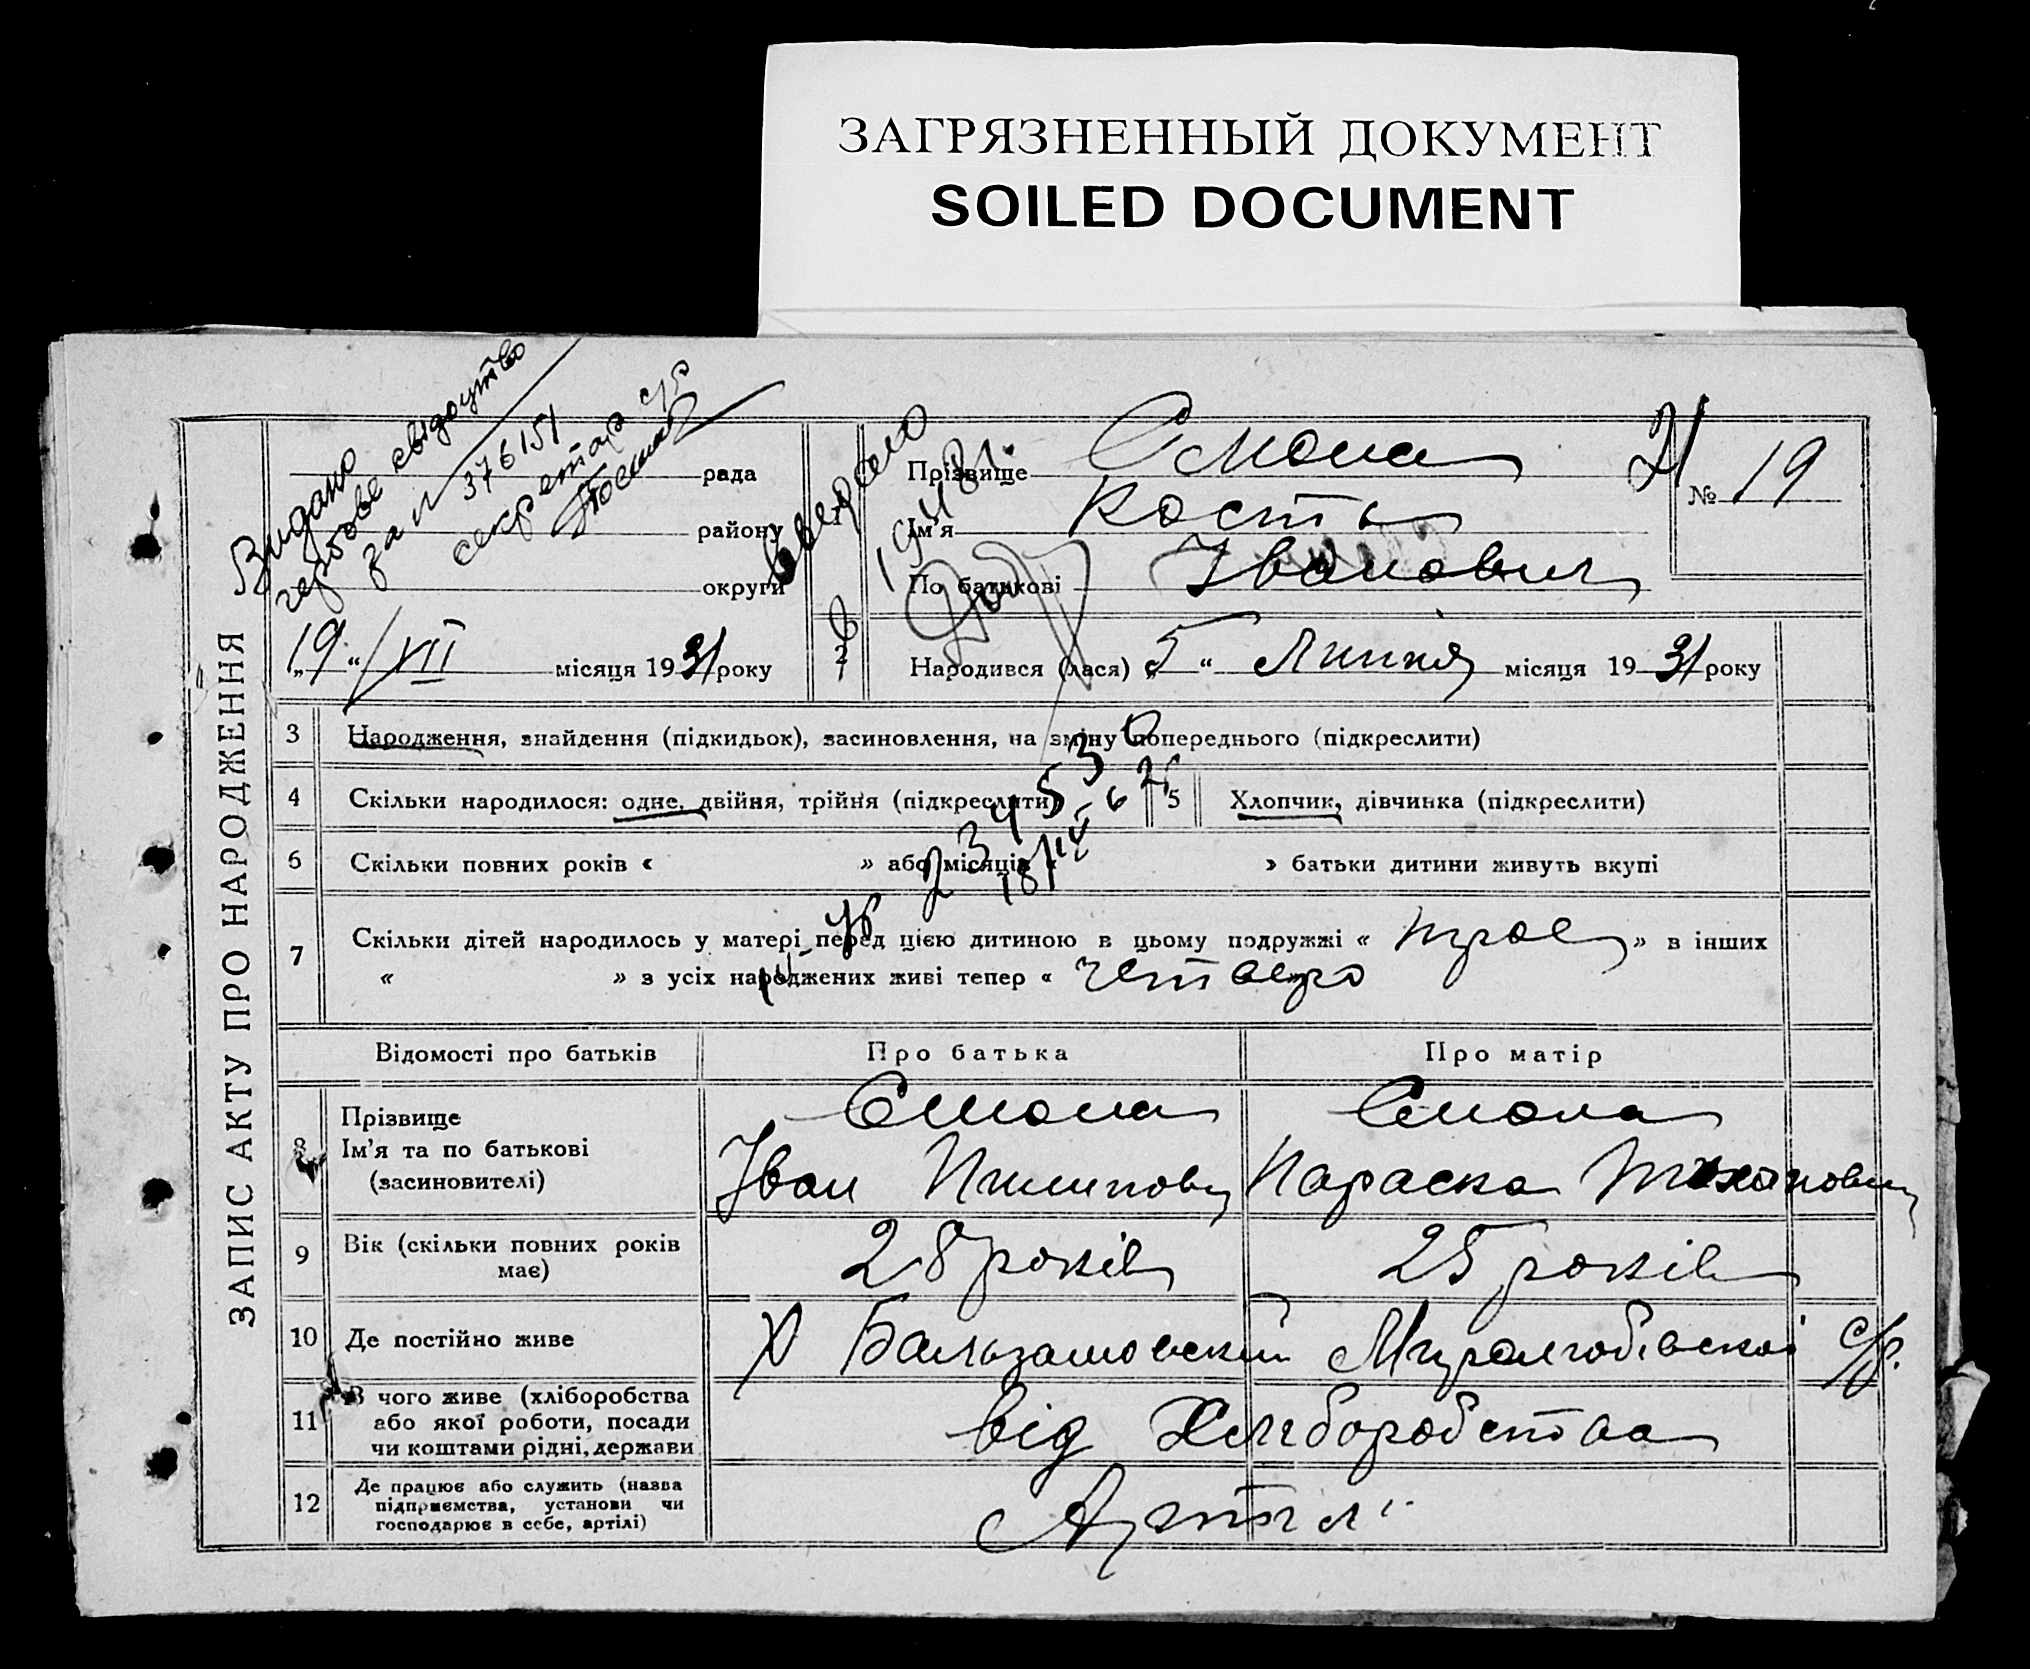 ЗАГРЯЗНЕННЫЙ ДОКУМЕНТ
SOILED DOCUMENT
ЗАПИС АКТУ ПРО НАРОДЖЕННЯ
Видано
гербове свідоцтво
за № 376151
секретар с/р
рада
району
округи
„19“/VII місяця 1931 року
звірено
1948
1 Прізвище Смола
Ім'я Кость
По батькові Іванович
№ 19
2 Народився (лася) „5“ Липня місяця 1931 року
3 Народження, знайдення (підкидьок), засиновлення, на зміну попереднього (підкреслити)
4 Скільки народилося: одне, двійня, трійня (підкреслити)
5 Хлопчик, дівчинка (підкреслити)
6 Скільки повних років « » або місяців « » батьки дитини живуть вкупі
7 Скільки дітей народилось у матері перед цією дитиною в цьому подружжі « троє » в інших
« » з усіх народжених живі тепер « четверо
Відомості про батьків Про батька Про матір
8 Прізвище Смола Смола
Ім'я та по батькові Іван Пилипов Параска
(засиновителі)
9 Вік (скільки повних років 28 років 25 років
має)
10 Де постійно живе х Бальзамовский с/р.
11 З чого живе (хліборобства
або якої роботи, посади від Хліборобства
чи коштами рідні, держави
12 Де працює або служить (назва
підприємства, установи чи Артіл
господарює в себе, артілі)